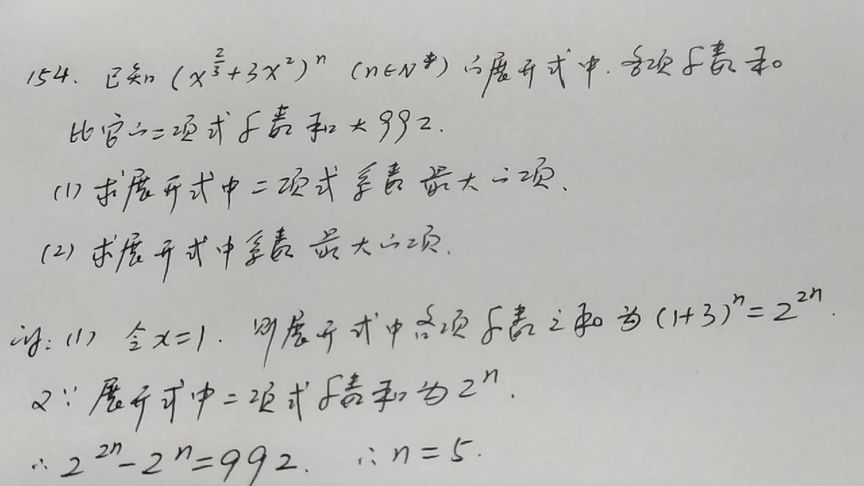 154. 已知 (x^{2/3}+3x²)ⁿ (n∈N*) 的展开式中. 各项系数和
比它的二项式系数和大992.
(1) 求展开式中二项式系数最大的项.
(2) 求展开式中系数最大的项.
解: (1) 令x=1. 则展开式中各项系数之和为(1+3)ⁿ=2²ⁿ.
又∵展开式中二项式系数和为2ⁿ.
∴ 2²ⁿ-2ⁿ=992. ∴n=5.